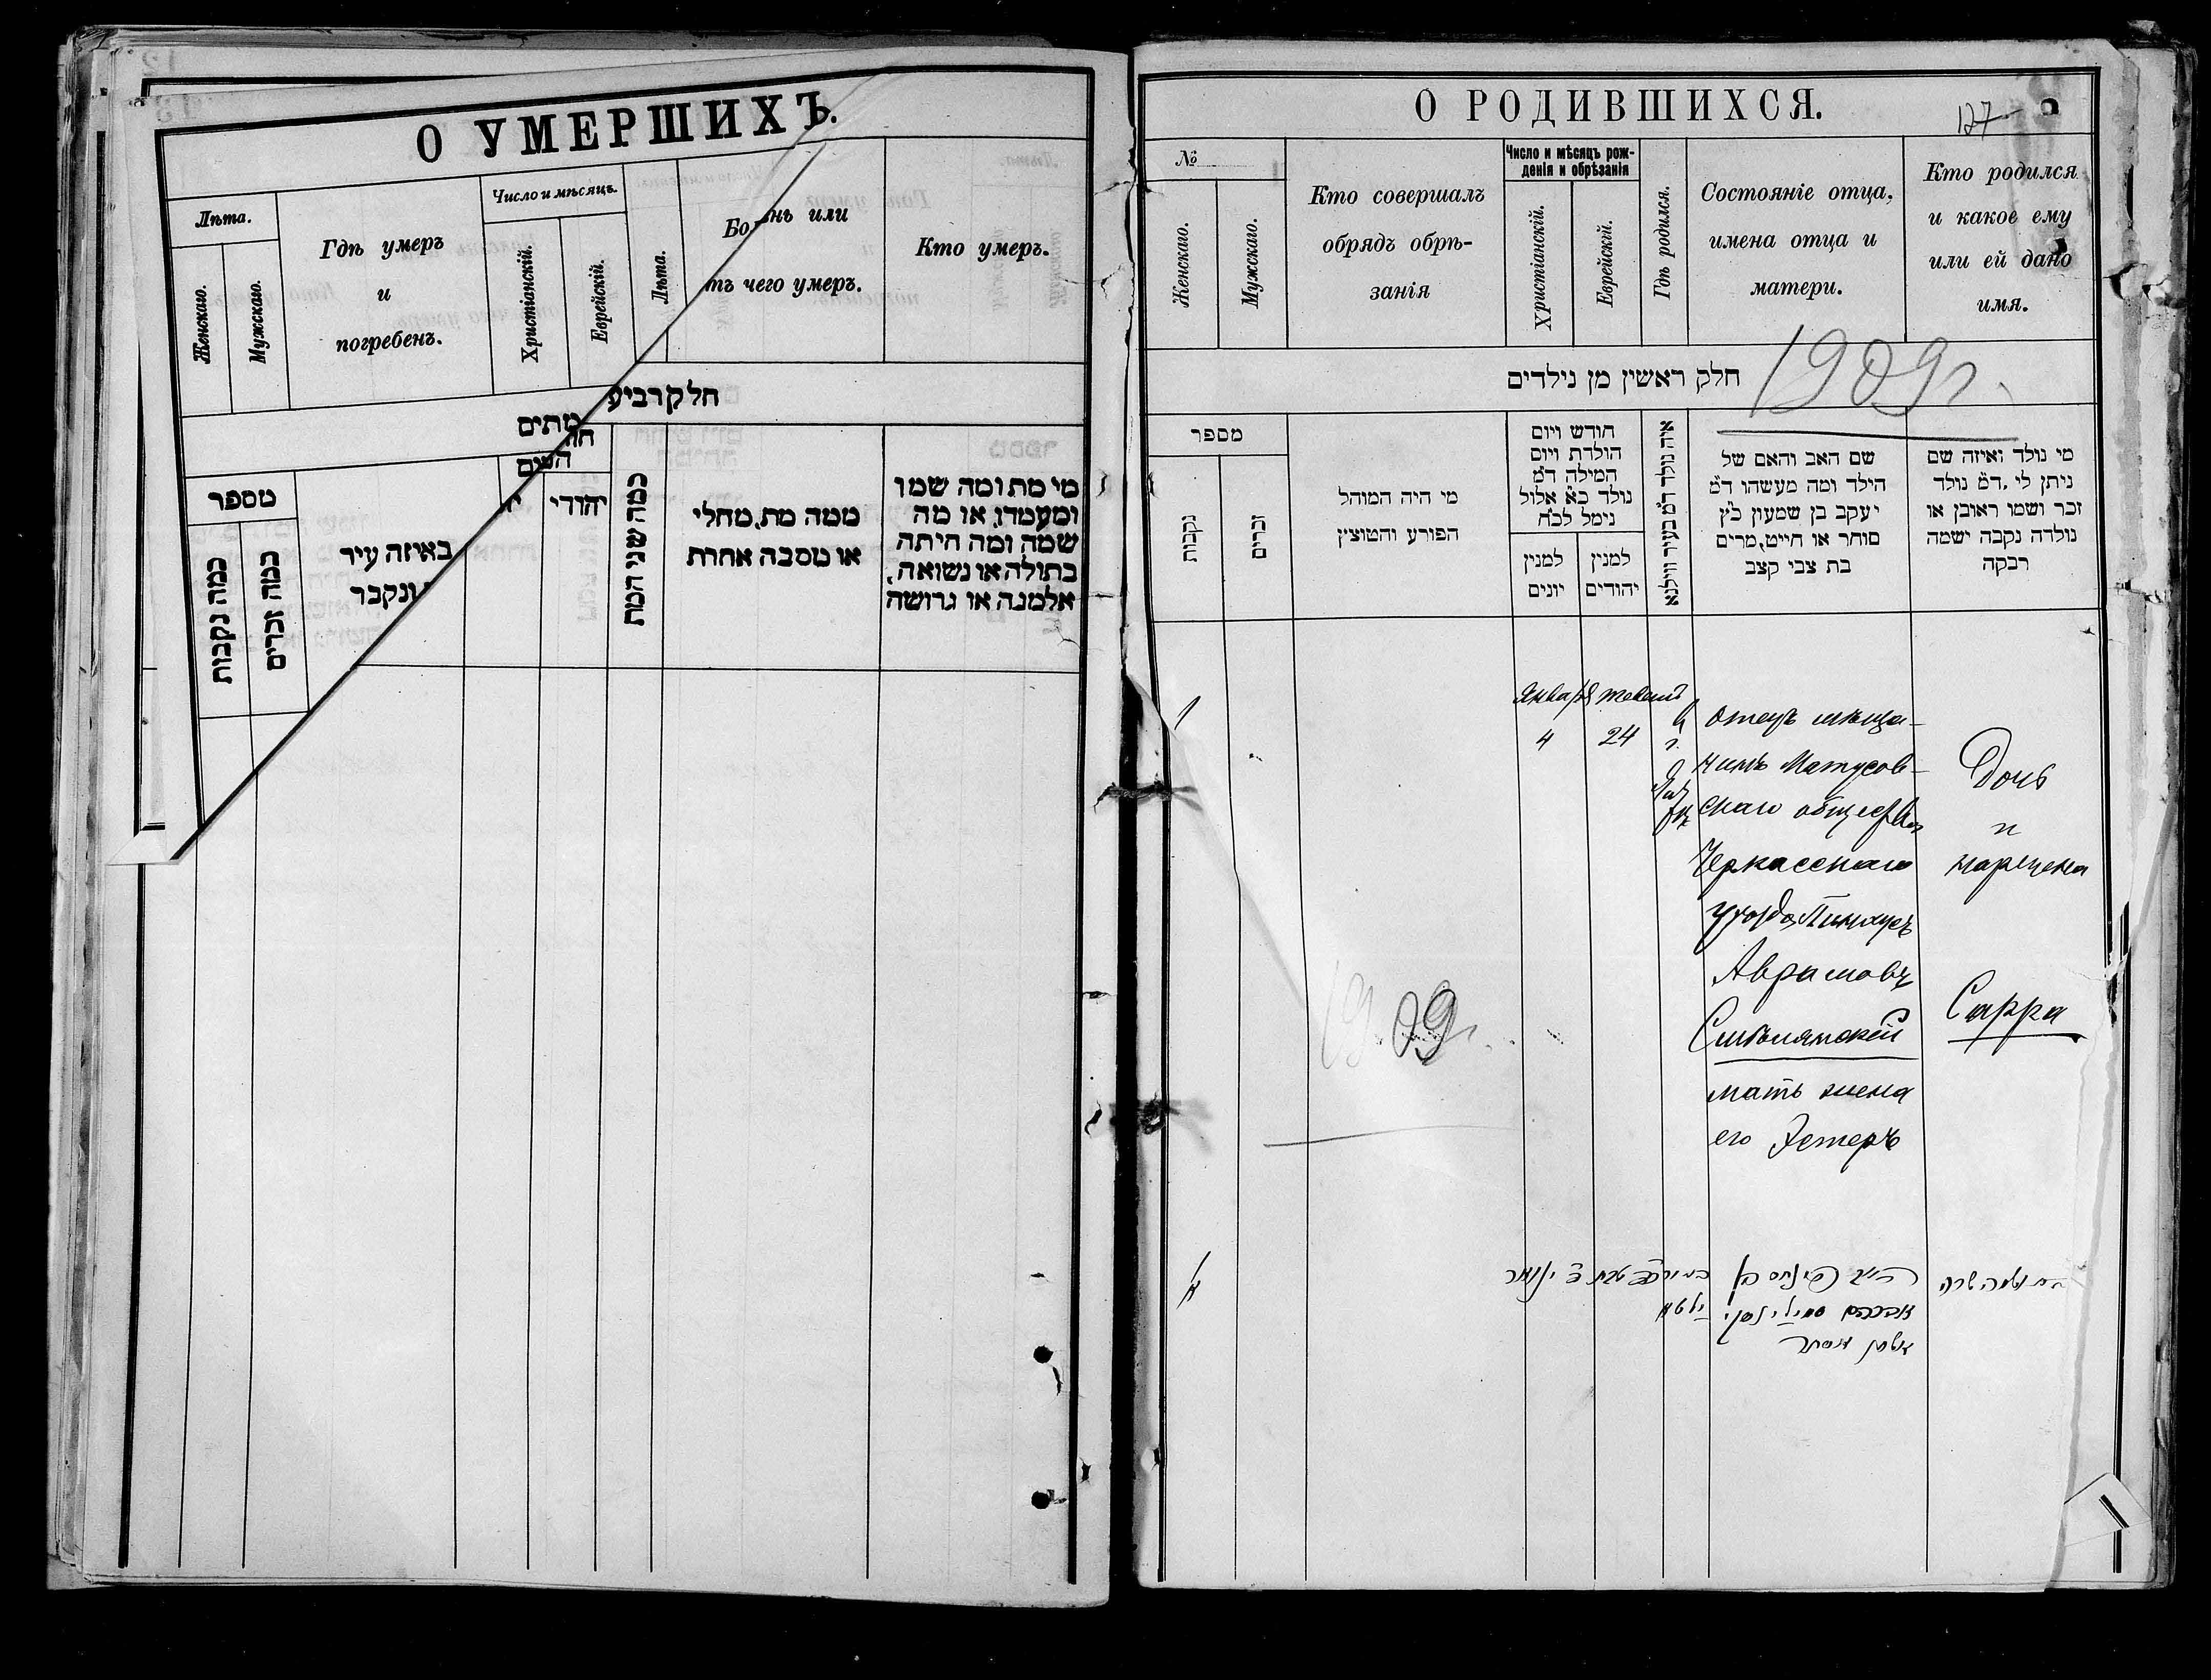 О УМЕРШИХЪ.
Лѣта.
Женскаго.
Мужскаго.
Гдѣ умеръ
и
погребенъ.
Число и мѣсяцъ.
Христіанскій.
Еврейскій.
Лѣта.
или
чего умеръ.
Кто умеръ.
חלק רביע
מתים
מספר
כמה נקבות
כמה זכרים
באיזה עיר
ונקבר
יהודי
כמה שני המת
ממה מת, מחלי
או מסבה אחרת
מי מת ומה שמו
ומעמדו, או מה
שמה ומה היתה
בתולה או נשואה,
אלמנה או גרושה
О РОДИВШИХСЯ.
127
№
Женскаго.
Мужскаго.
Кто совершалъ
обрядъ обрѣ-
занія
Число и мѣсяцъ рож-
денія и обрѣзанія
Христіанскій.
Еврейскій.
Гдѣ родился.
Состояніе отца,
имена отца и
матери.
Кто родился
и какое ему
или ей дано
имя.
חלק ראשין מן נילדים
1909 г.
מספר
נקבות
זכרים
מי היה המוהל
הפורע והמוצץ
חודש ויום
הולדת ויום
המילה ד״מ
נולד כ״א אלול
נימל לכ״ח
למנין
יונים
למנין
יהודים
איה נולד ד״מ בעיר ווילנא
שם האב והאם של
הילד ומה מעשהו ד״מ
יעקב בן שמעון כ״ץ
סוחר או חייט, מרים
בת צבי קצב
מי נולד ואיזה שם
ניתן לי, ד״מ נולד
זכר ושמו ראובן או
נולדה נקבה ישמה
רבקה
1
Января
4
тевет
24
отецъ мѣща-
нинъ Матусов-
скаго общества
Черкасскаго
уѣзда, Пинхусъ
Аврамовъ
Смѣлянскій
мать жена
его Эстеръ
Дочь
и
наречена
Сарра
1909 г.
פינחס בן
אברהם סמילינסקי
אשתו אסתר
טבת
ינואר
ילטא
שרה